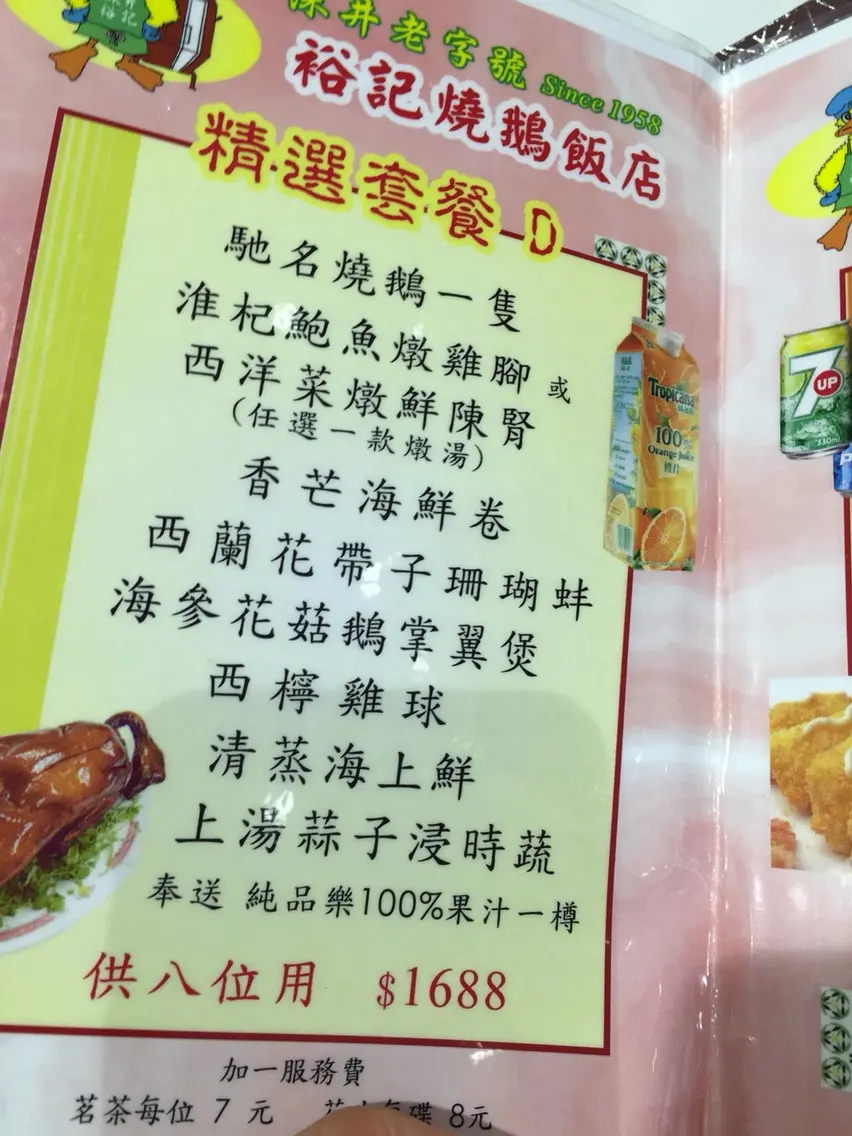 裕記
深井老字號 Since 1958
裕記燒鵝飯店
精選套餐 D
馳名燒鵝一隻
淮杞鮑魚燉雞腳 或
西洋菜燉鮮陳腎
(任選一款燉湯)
香芒海鮮卷
西蘭花帶子珊瑚蚌
海參花菇鵝掌翼煲
西檸雞球
清蒸海上鮮
上湯蒜子浸時蔬
奉送 純品樂100%果汁一樽
供八位用 $1688
加一服務費
茗茶每位 7 元 碟 8元
Tropicana
100%
Orange Juice
橙汁
7UP
330ml